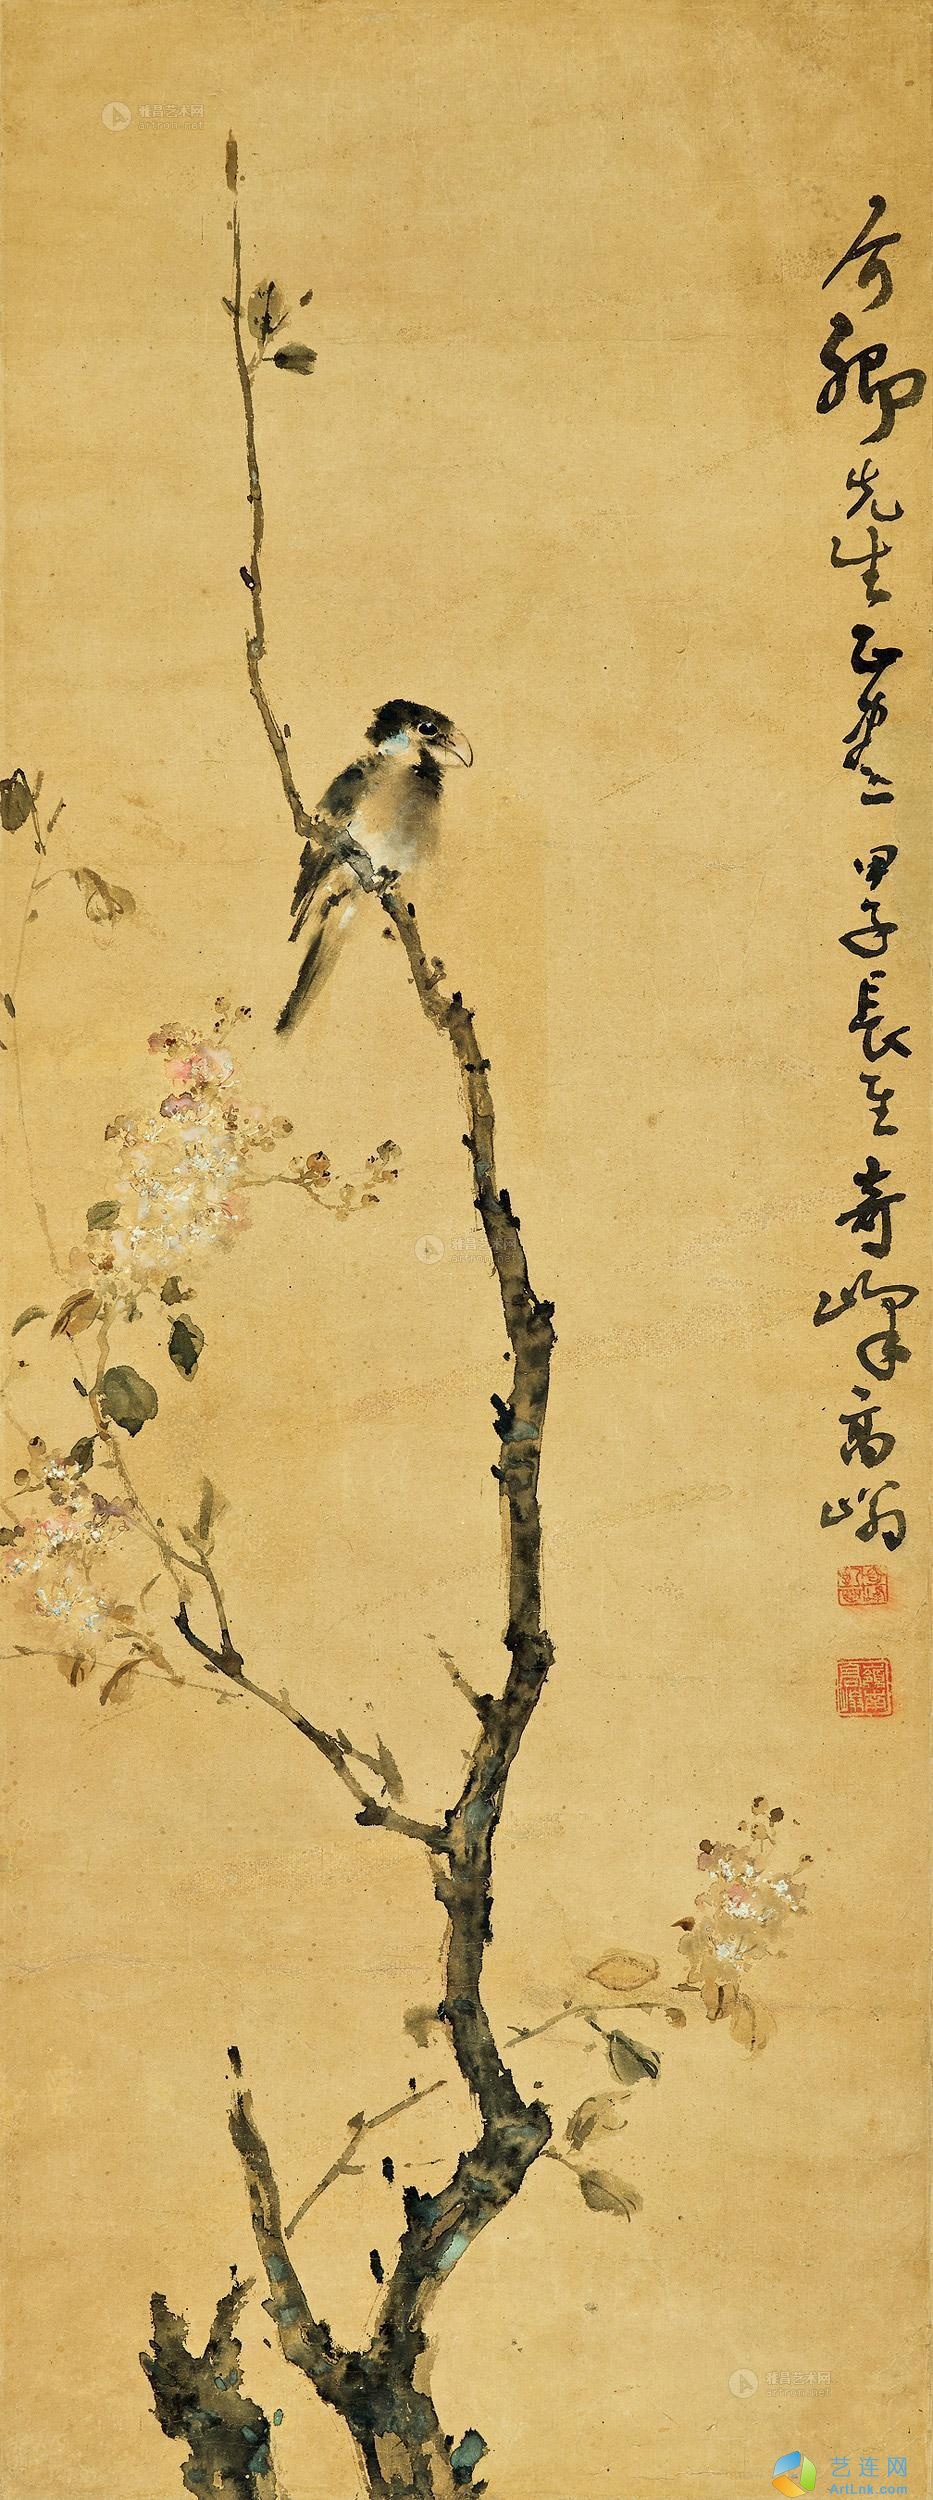 雅昌艺术网
artron.net
介卿先生正 甲子長至奇峰高嵡
雅昌艺术网
artron.net
嶺南高嵡
雅昌艺术网
artron.net
艺连网
ArtLnk.com